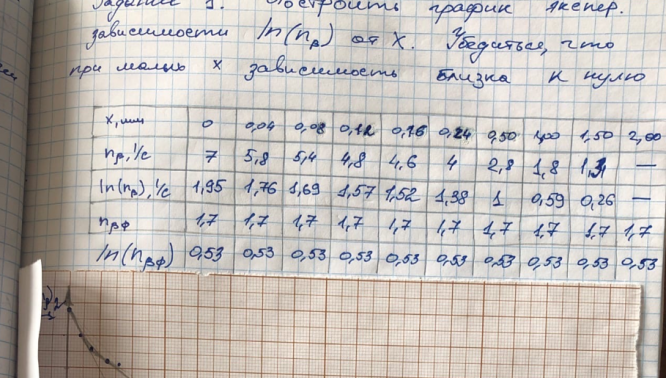 Задание 1. Построить график экспер.
зависимости ln(nβ) от x. Убедиться, что
при малых x зависимость близка к нулю
x, мм 0 0,04 0,08 0,12 0,16 0,24 0,50 1,00 1,50 2,00
nβ, 1/c 7 5,8 5,4 4,8 4,6 4 2,8 1,8 1,3 —
ln(nβ), 1/c 1,95 1,76 1,69 1,57 1,52 1,38 1 0,59 0,26 —
nβф 1,7 1,7 1,7 1,7 1,7 1,7 1,7 1,7 1,7 1,7
ln(nβф) 0,53 0,53 0,53 0,53 0,53 0,53 0,53 0,53 0,53 0,53
2